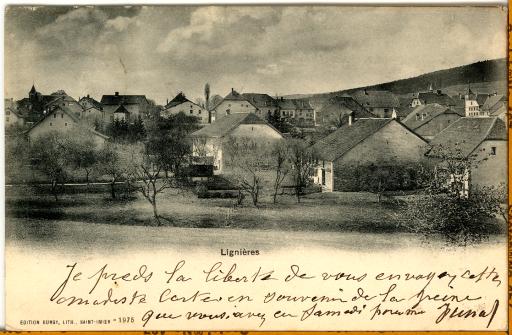 Lignières
Je preds la liberté de vous envoyez cette
modeste Carte en souvenir de la peine
que vous avez eu Samedi pour me
EDITION BURGY, LITH., SAINT-IMIER - 1975